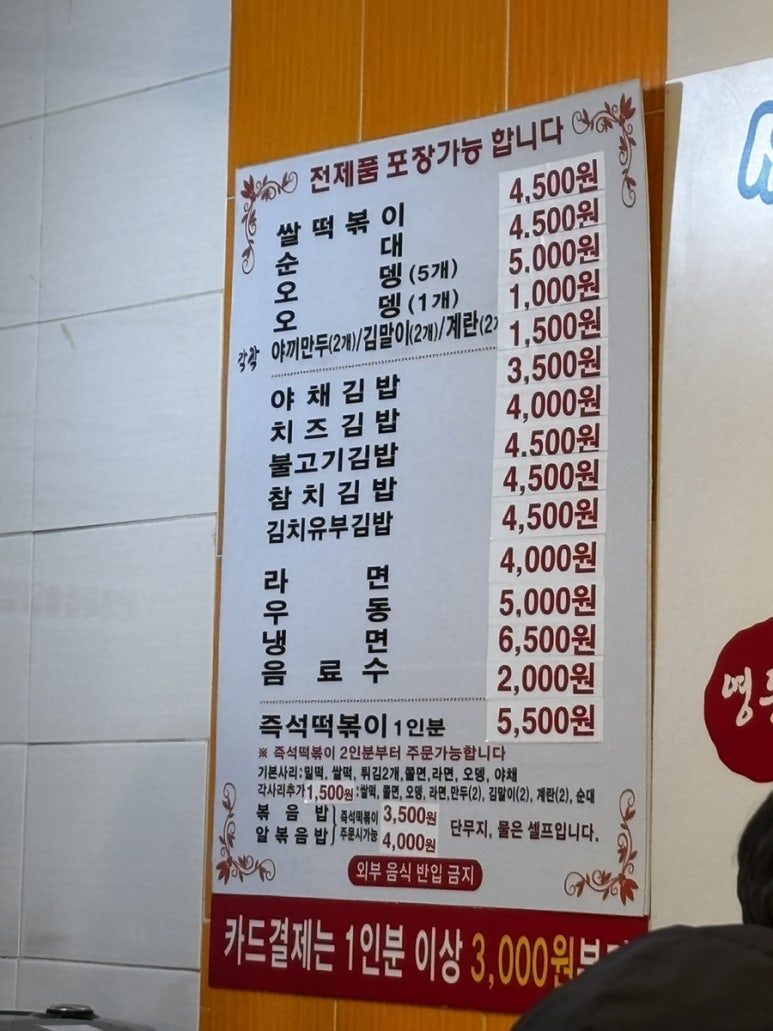 전제품 포장가능 합니다
쌀떡볶이 4,500원
순대 4,500원
오뎅(5개) 5,000원
오뎅(1개) 1,000원
각각 야끼만두(2개)/김말이(2개)/계란(2 1,500원
야채김밥 3,500원
치즈김밥 4,000원
불고기김밥 4,500원
참치김밥 4,500원
김치유부김밥 4,500원
라면 4,000원
우동 5,000원
냉면 6,500원
음료수 2,000원
즉석떡볶이 1인분 5,500원
※ 즉석떡볶이 2인분부터 주문가능합니다
기본사리:밀떡, 쌀떡, 튀김2개,쫄면,라면, 오뎅, 야채
각사리추가1,500원:쌀떡, 쫄면, 오뎅, 라면,만두(2), 김말이(2), 계란(2), 순대
볶음밥 즉석떡볶이 3,500원
알볶음밥 주문시가능 4,000원
단무지, 물은 셀프입니다.
외부 음식 반입 금지
카드결제는 1인분 이상 3,000원